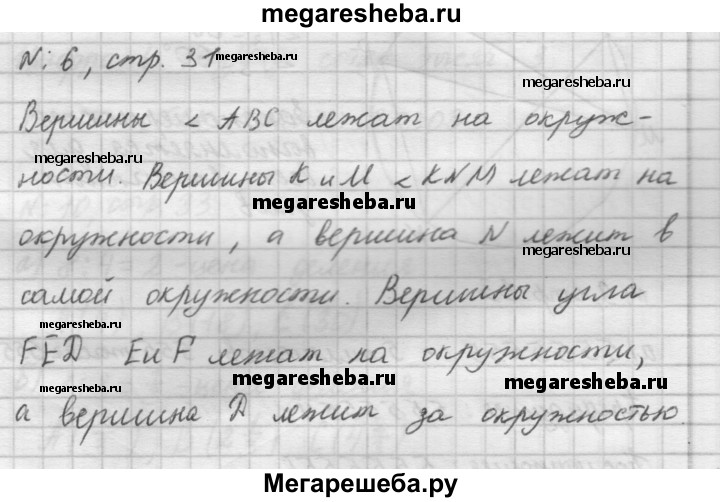 megaresheba.ru
№ 6, стр. 31 megaresheba.ru
megaresheba.ru
Вершины < ABC лежат на окруж-
megaresheba.ru
ности. Вершины K и M < KNM лежат на
megaresheba.ru
окружности, а вершина N лежит в
megaresheba.ru
самой окружности. Вершины угла
megaresheba.ru
FED E и F лежат на окружности,
megaresheba.ru megaresheba.ru
а вершина D лежит за окружностью.
Мегарешеба.ру